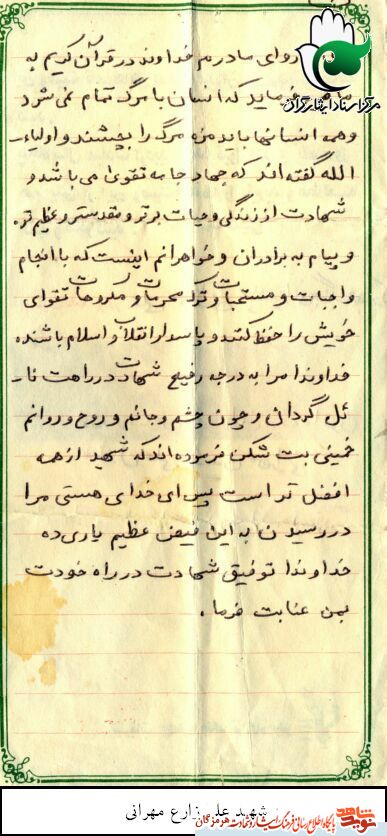 مرکز اسناد ایثارگران
روای مادرم خداوند در قرآن کریم به
میفرماید که انسان با مرگ تمام نمی شود
وهمه انسانها باید مزه مرگ را بچشند و اولیاء-
الله گفته اند که جهاد جامه تقوی می باشد و
شهادت از زندگی و حیات برتر و مقدستر و عظیم تره
و پیام به برادران و خواهرانم اینست که با انجام
واجبات و مستحبات و ترک محرمات و مکروهات تقوای
خویش را حفظ کنند و پاسدار انقلاب و اسلام باشنده
خداوندا مرا به درجه رفیع شهادت در راهت نا-
ئل گردان و چون چشم و جانم و روح و روانم
خمینی بت شکن فرموده اند که شهید از همه
افضل تر است پس ای خدای هستی مرا
در رسیدن به این فیض عظیم یاری ده
خداوندا توفیق شهادت در راه خودت
بمن عنایت فرما.
شهید علی زارع مهرانی
شاهد
نوید
پایگاه اطلاع رسانی فرهنگ ایثار و شهادت هرمزگان